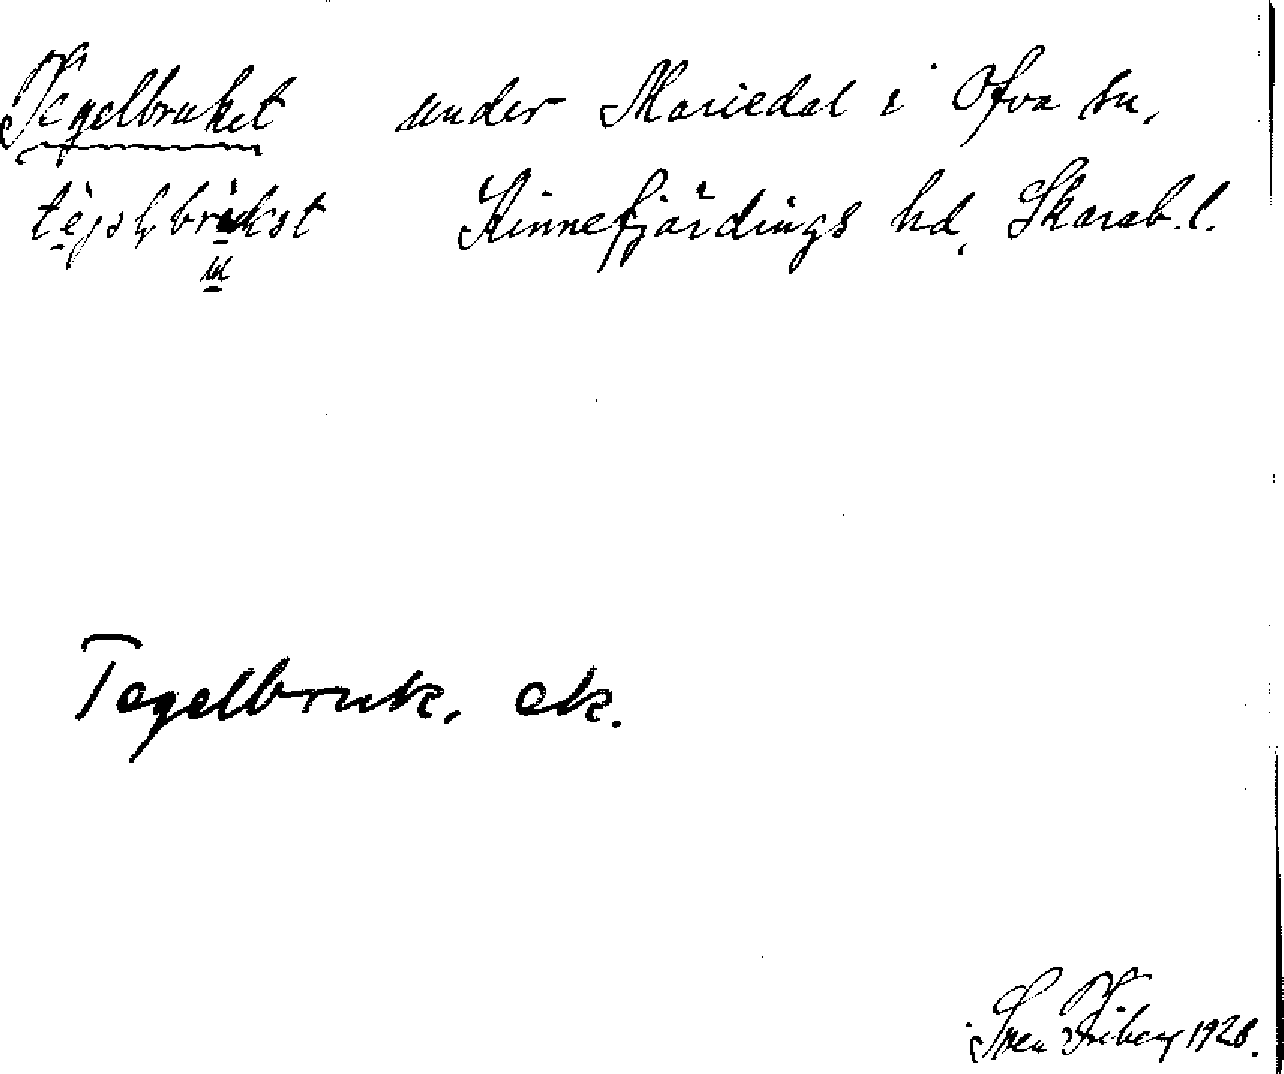 Tegelbruket under Mariedal i Ova sn,
Kinnefjärdings hd, Skarab. l.
Tegelbruk, ek.
Sven Friberg 1928.